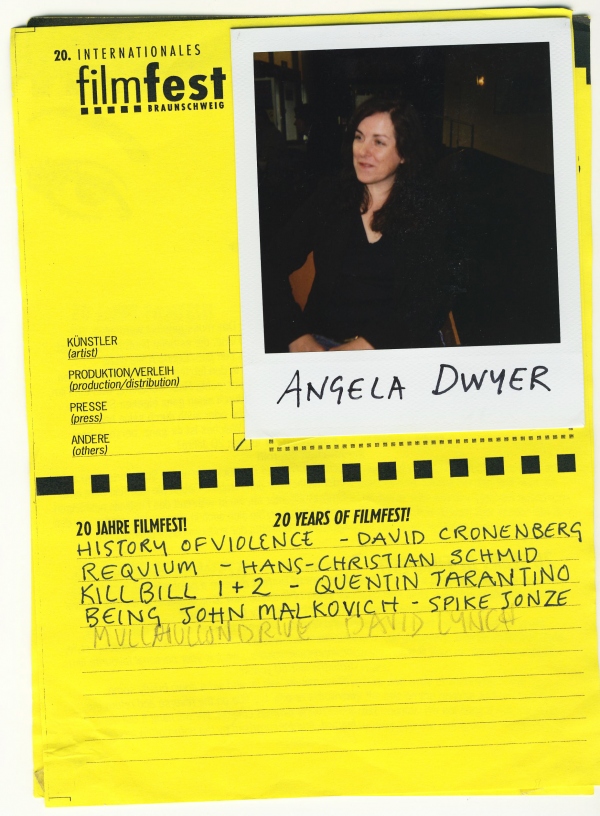 20. INTERNATIONALES
filmfest
BRAUNSCHWEIG
KÜNSTLER
(artist)
PRODUKTION/VERLEIH
(production/distribution)
PRESSE
(press)
ANDERE
(others)
ANGELA DWYER
20 JAHRE FILMFEST!
20 YEARS OF FILMFEST!
HISTORY OF VIOLENCE - DAVID CRONENBERG
REQVIUM - HANS-CHRISTIAN SCHMID
KILL BILL 1+2 - QUENTIN TARANTINO
BEING JOHN MALKOVICH - SPIKE JONZE
DAVID LYNCH